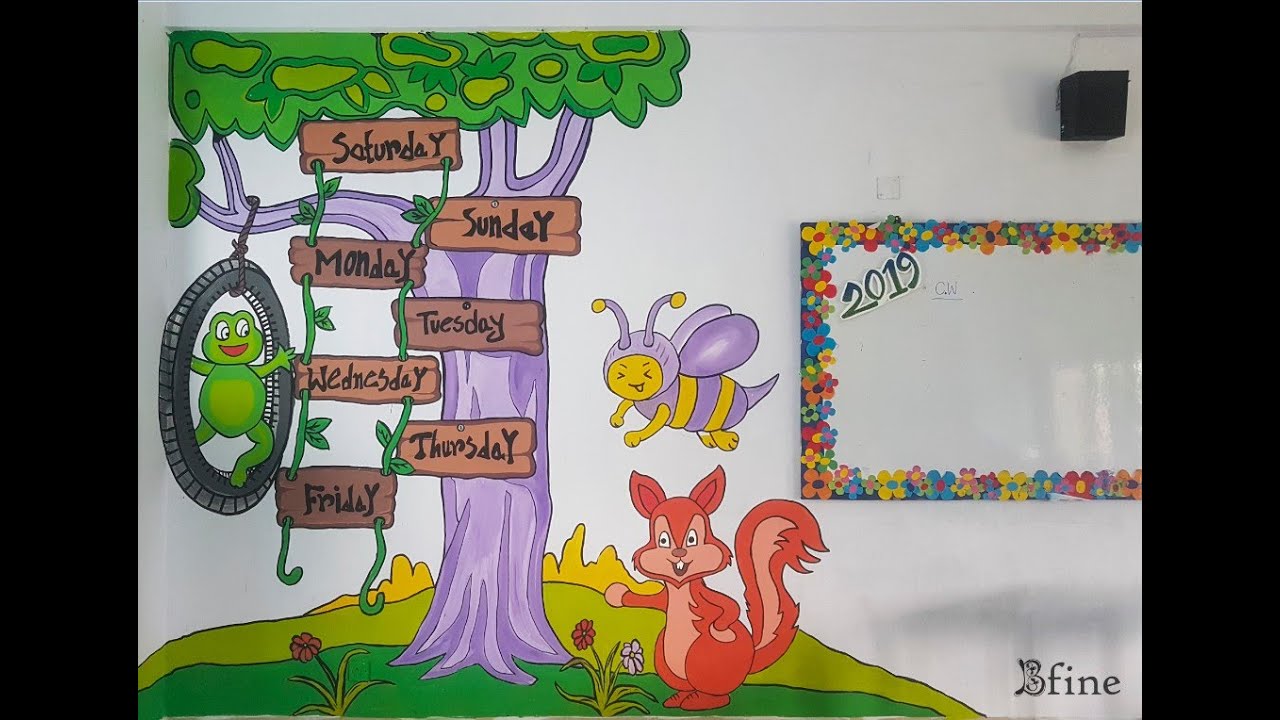 Saturday
Sunday
Monday
Tuesday
Wednesday
Thursday
Friday
2019
C.W
Bfine